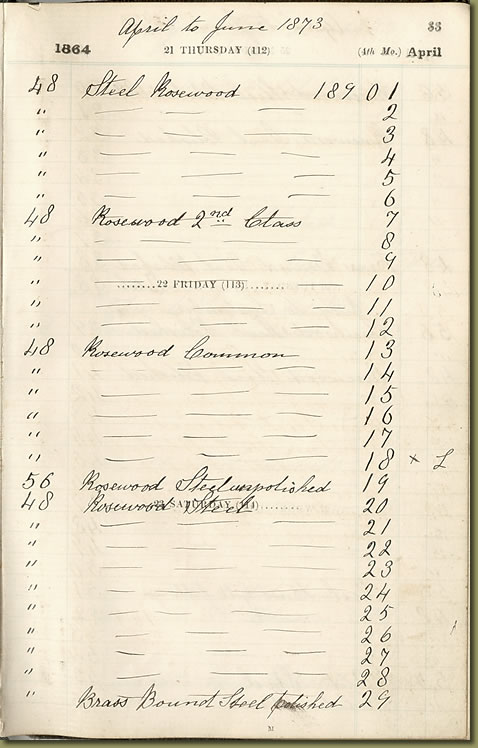 April to June 1873
33
1864 21 THURSDAY (112) (4th Mo.) April
48 Steel Rosewood 189 0 1
" — — — 2
" — — — 3
" — — — 4
" — — — 5
" — — — 6
48 Rosewood 2nd Class 7
" — — — 8
" — — — 9
" 22 FRIDAY (113) 10
" — — — 11
" — — — 12
48 Rosewood Common 13
" — — — 14
" — — — 15
" — — — 16
" — — — 17
" — — — 18 × L
56 Rosewood Steel unpolished 19
48 Rosewood Steel 20
23 SATURDAY (114)
" — — — 21
" — — — 22
" — — — 23
" — — — 24
" — — — 25
" — — — 26
" — — — 27
" — — — 28
" Brass Bound Steel polished 29
M